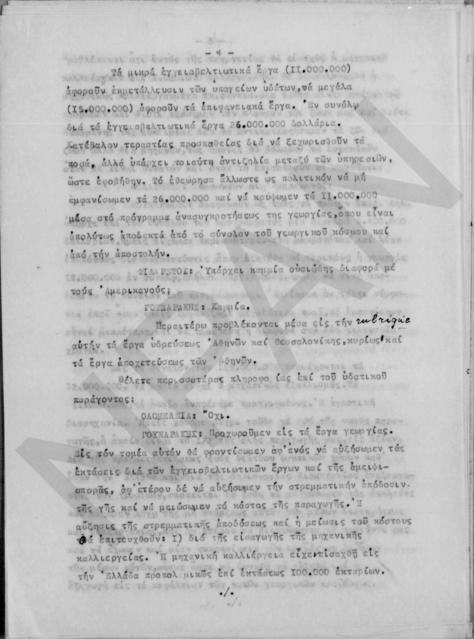 - 4 -
Τά μικρά ἐγγειοβελτιωτικά ἔργα (11.000.000)
ἀφοροῦν ἐκμετάλλευσιν τῶν ὑπογείων ὑδάτων, τά μεγάλα
(15.000.000) ἀφοροῦν τά ἐπιφανειακά ἔργα. Ἐν συνόλῳ
διά τά ἐγγειοβελτιωτικά ἔργα 26.000.000 δολλάρια.
Κατέβαλον τεραστίας προσπαθείας διά νά ξεχωρισθοῦν τά
ποσά, ἀλλά ὑπάρχει τοιαύτη ἀντιζηλία μεταξύ τῶν ὑπηρεσιῶν,
ὥστε ἐφοβήθην. Τό ἐθεώρησα ἄλλωστε ὡς πολιτικόν νά μή
ἐμφανίσωμεν τά 26.000.000 καί νά κρύψωμεν τά 11.000.000
μέσα στό πρόγραμμα ἀνασυγκροτήσεως τῆς γεωργίας, ὅπου εἶναι
ἀπολύτως ἀποδεκτά ἀπό τό σύνολον τοῦ γεωργικοῦ κόσμου καί
ἀπό τήν ἀποστολήν.
ΦΙΛΑΡΕΤΟΣ: Ὑπάρχει καμμία οὐσιώδης διαφορά μέ
τούς Ἀμερικανούς;
ΓΟΥΝΑΡΑΚΗΣ: Καμμία.
Περαιτέρω προβλέπονται μέσα εἰς τήν rubrique
αὐτήν τά ἔργα ὑδρεύσεως Ἀθηνῶν καί Θεσσαλονίκης, κυρίως, καί
τά ἔργα ἀποχετεύσεως τῶν Ἀθηνῶν.
Θέλετε περισσοτέρας πληροφορίας ἐπί τοῦ ὑδατικοῦ
παράγοντος;
ΟΛΟΜΕΛΕΙΑ: Ὄχι.
ΓΟΥΝΑΡΑΚΗΣ: Προχωροῦμεν εἰς τά ἔργα γεωργίας.
Εἰς τόν τομέα αὐτόν θά φροντίσωμεν ἀφ' ἑνός νά αὐξήσωμεν τάς
ἐκτάσεις διά τῶν ἐγγειοβελτιωτικῶν ἔργων καί τῆς ἀμειψι-
σπορᾶς, ἀφ' ἑτέρου δέ νά αὐξήσωμεν τήν στρεμματικήν ἀπόδοσιν
τῆς γῆς καί νά μειώσωμεν τό κόστος τῆς παραγωγῆς. Ἡ
αὔξησις τῆς στρεμματικῆς ἀποδόσεως καί ἡ μείωσις τοῦ κόστους
θά ἐπιτευχθοῦν: 1) διά τῆς εἰσαγωγῆς τῆς μηχανικῆς
καλλιεργείας. Ἡ μηχανική καλλιέργεια εἶχε εἰσαχθῆ εἰς
τήν Ἑλλάδα προπολεμικῶς ἐπί ἐκτάσεως 100.000 ἑκταρίων.
./.
ΑΡΑΝ